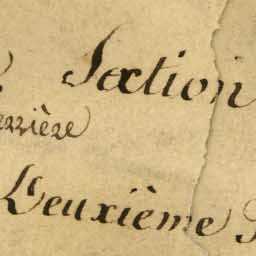 Section
errière
Deuxième